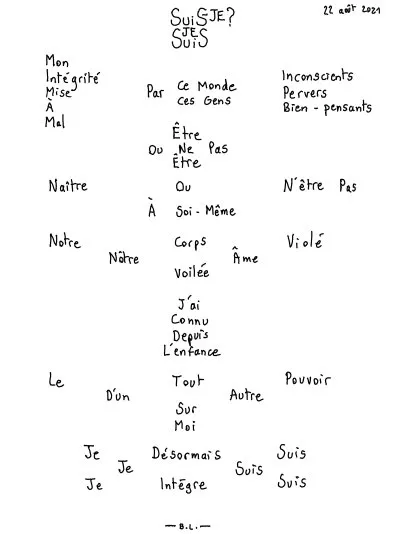 SuiS-JE?
22 août 2021
JE
SUiS
Mon
Intégrité
Mise
À
Mal
Par
Ce Monde
Ces Gens
Inconscients
Pervers
Bien-pensants
Être
Ou Ne Pas
Être
Naître Ou N'être Pas
À Soi-Même
Notre Corps Violé
Nôtre Âme
Voilée
J'ai
Connu
Depuis
L'enfance
Le Tout Pouvoir
D'un Autre
Sur
Moi
Je Désormais Suis
Je Suis
Je Intègre Suis
— B.L. —